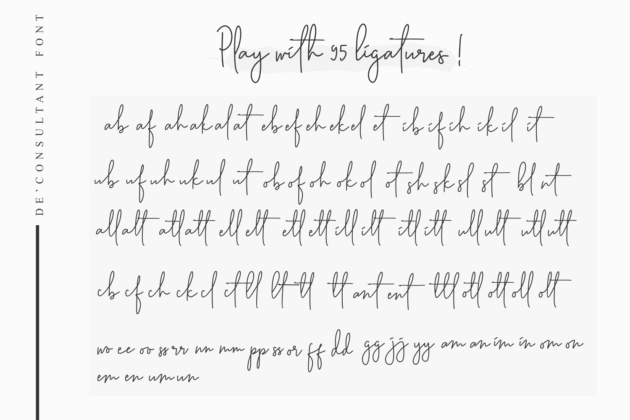 DE'CONSULTANT FONT
Play with 95 ligatures !
ab af ah ak al at eb ef eh ek el et ib if ih ik il it
ub uf uh uk ul ut ob of oh ok ol ot sh sk sl st bl nt
all att atl att ell ett etl ett ill itt itl itt ull utt utl utt
cb cf ch ck cl ct ll lt tl tt ant ent ttl otl ott oll olt
wo ee oo ss rr nn mm pp ss or ff dd gg jj yy am an im in om on
em en um un